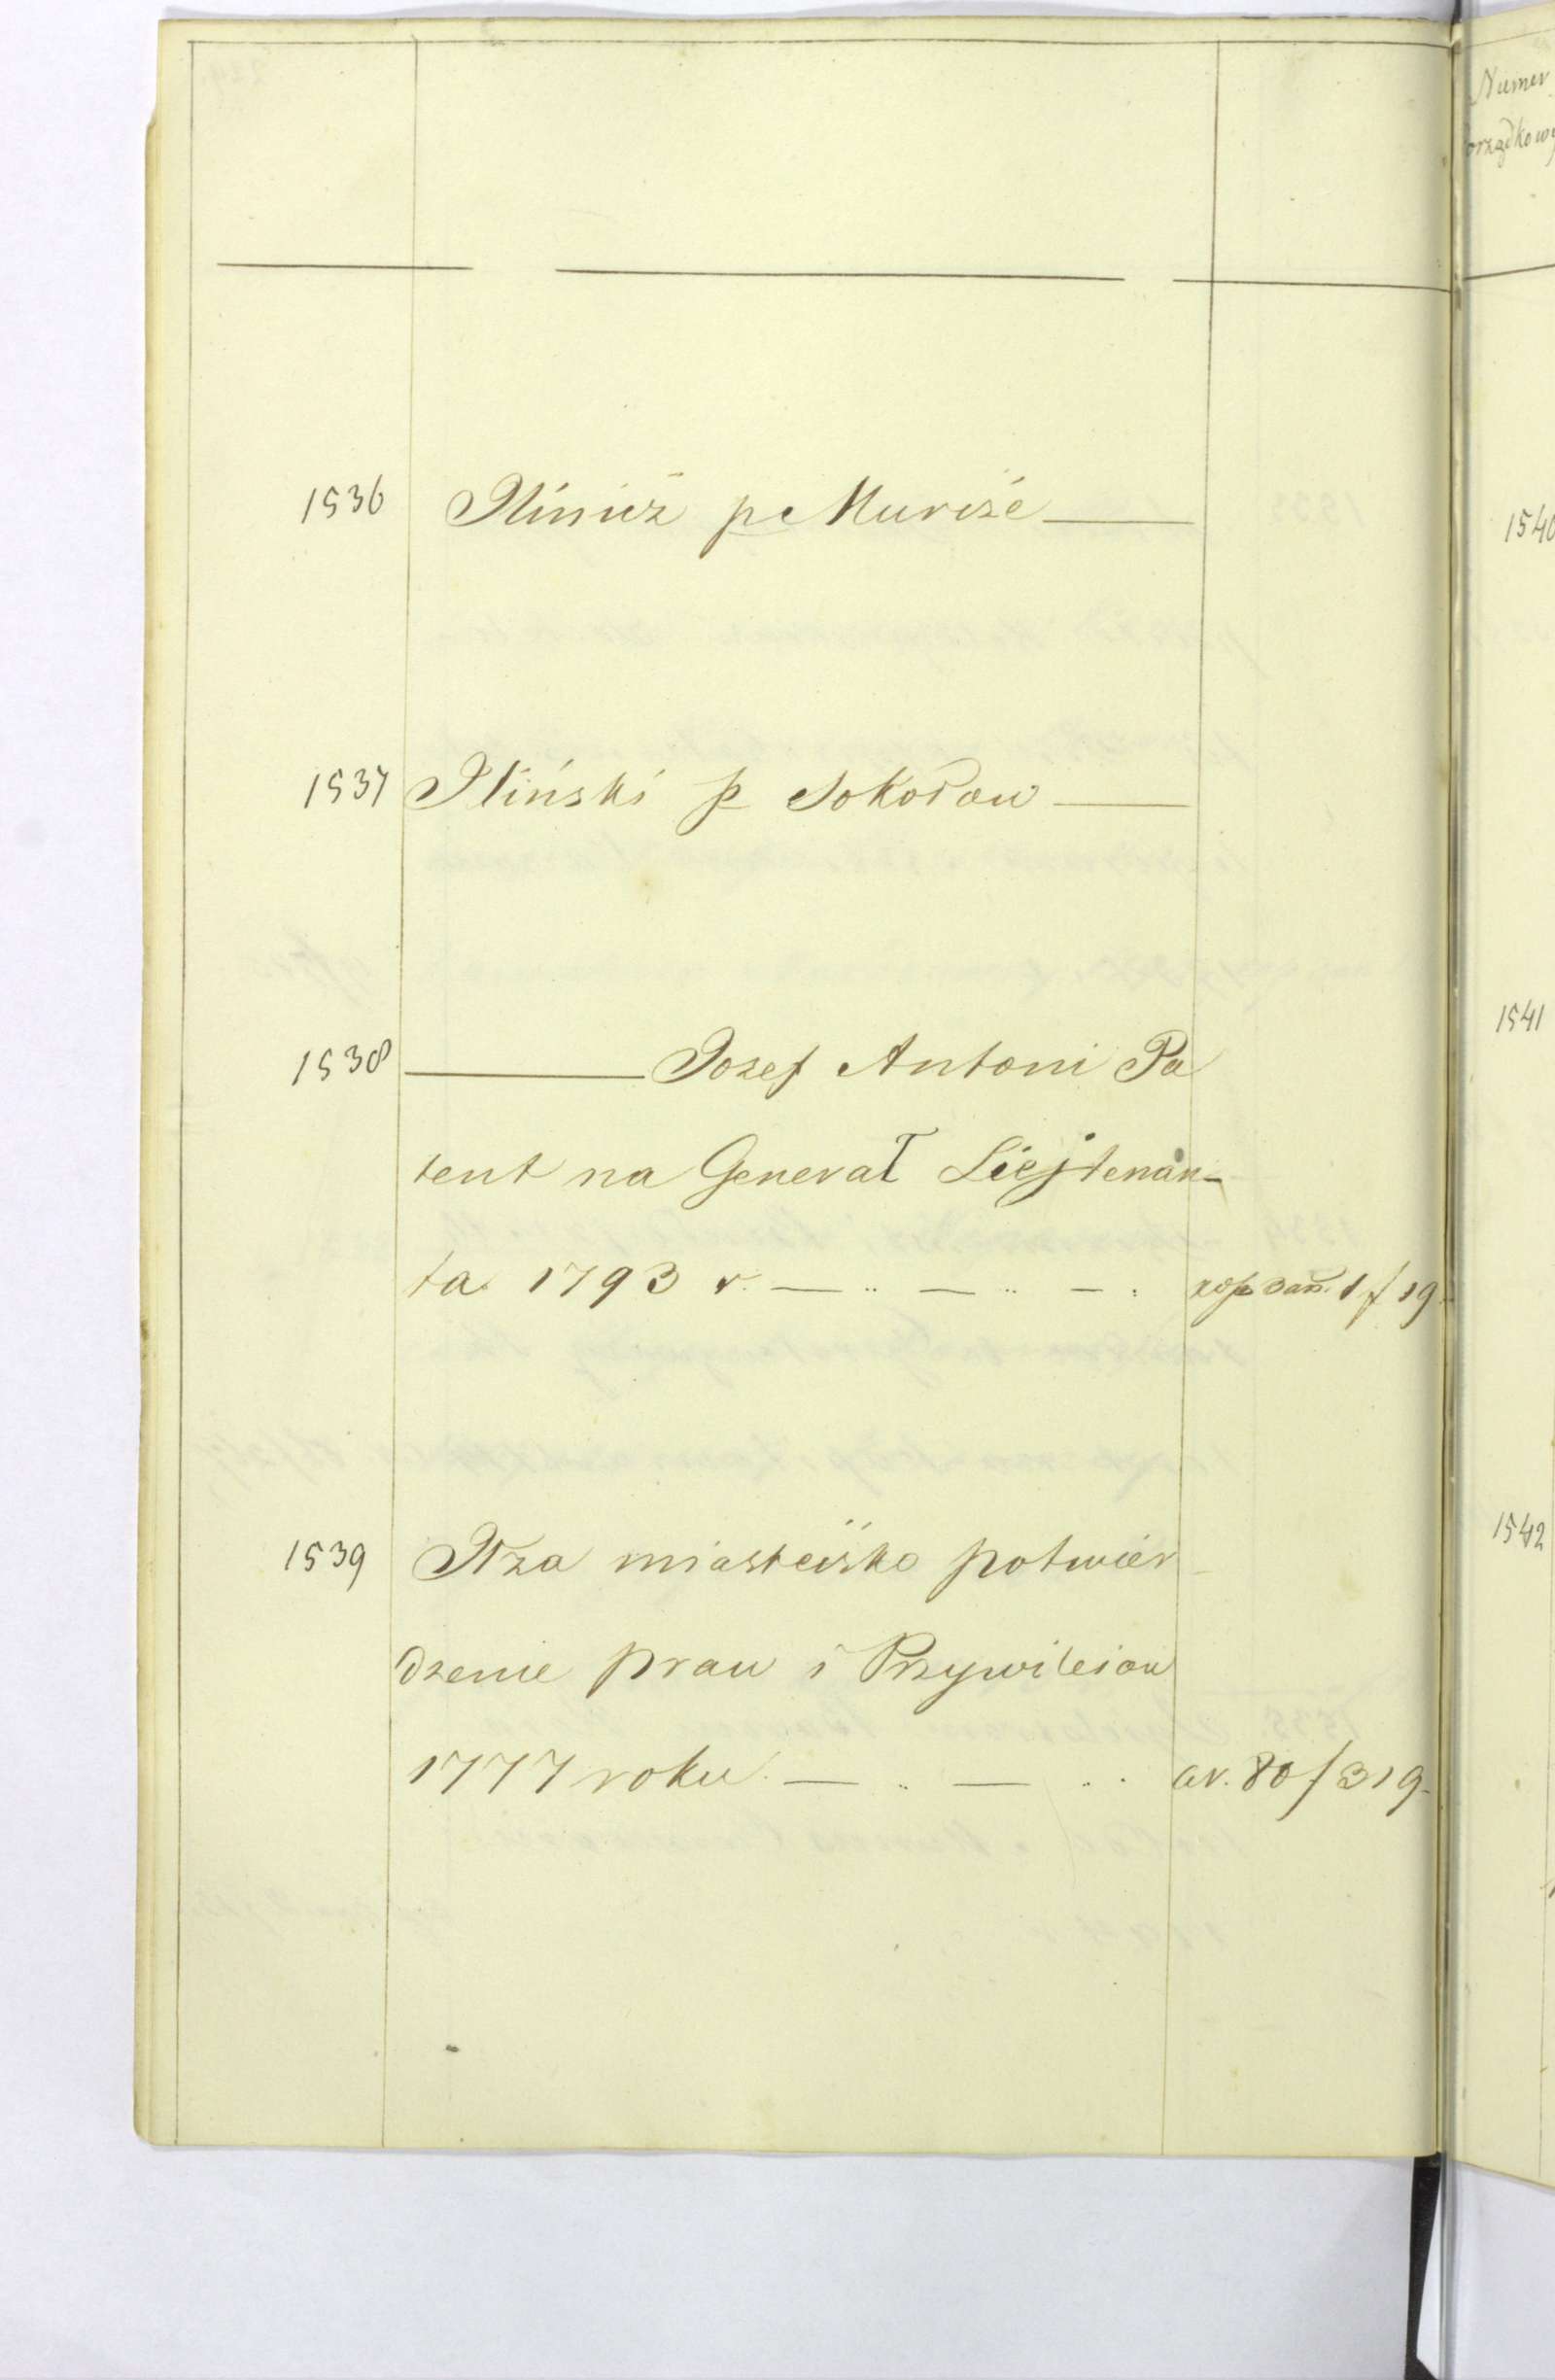 1536 Ilinicz p Murize
1537 Iliński p Sokołow
1538 Jozef Antoni Pa
tent na Generał Liejtenan-
ta 1793 r. kop зап. 1 f 19
1539 Itza miasteczko potwier
dzenie praw i Przywileiow
1777 roku av. 80 f 319
Numer
1540
1541
1542